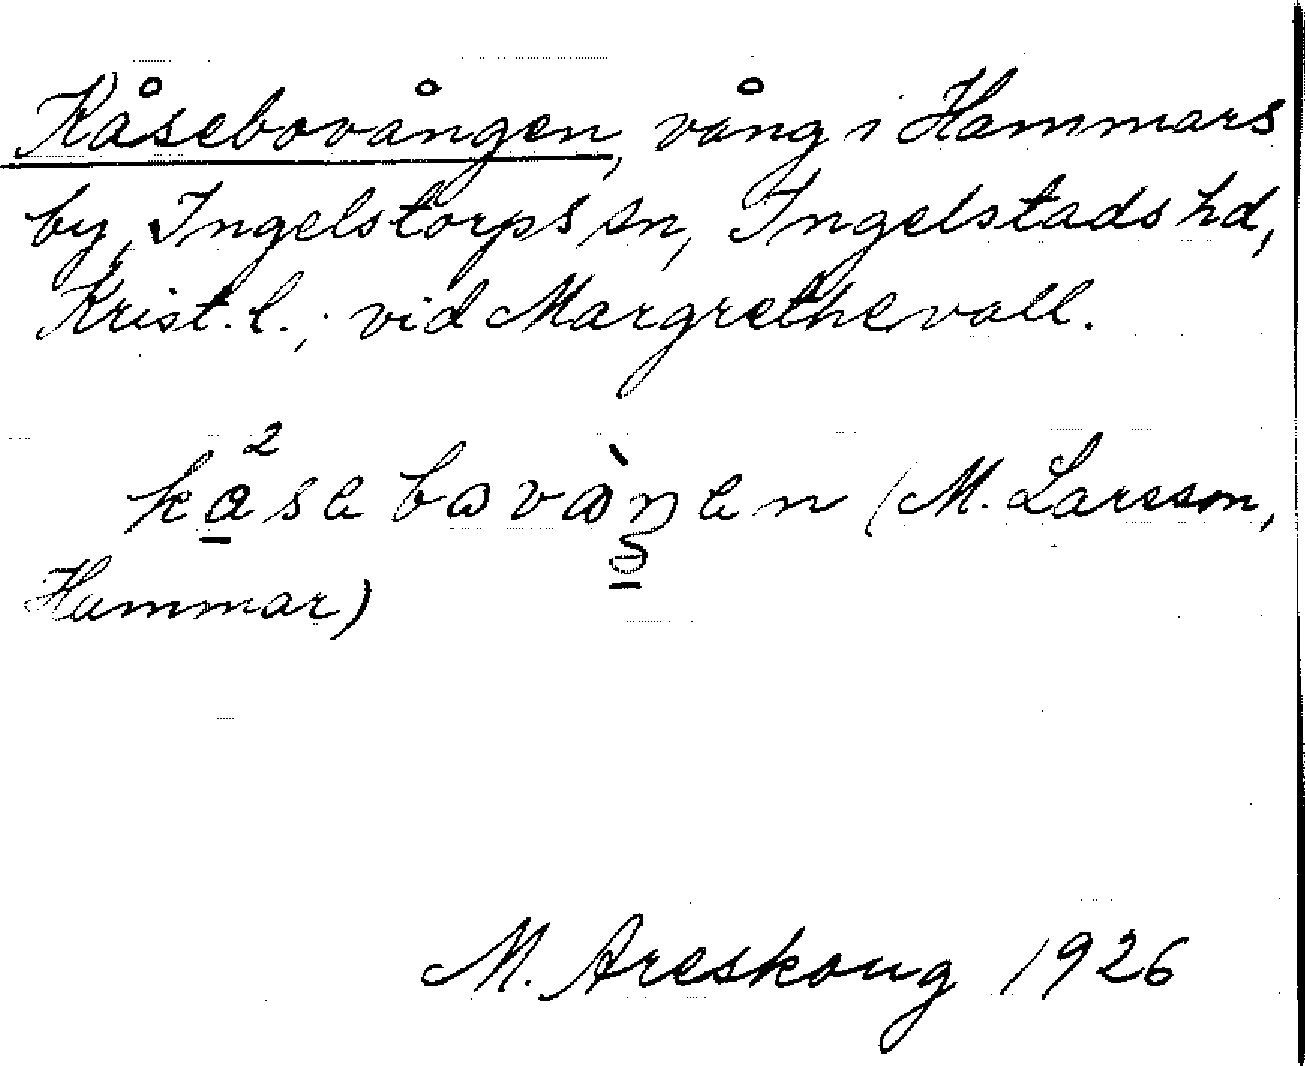 Kåsebovången, vång i Hammars
by, Ingelstorps sn, Ingelstads hd,
Krist. l.; vid Margrethevall.
(M. Larsson,
Hammar)
M. Areskoug 1926